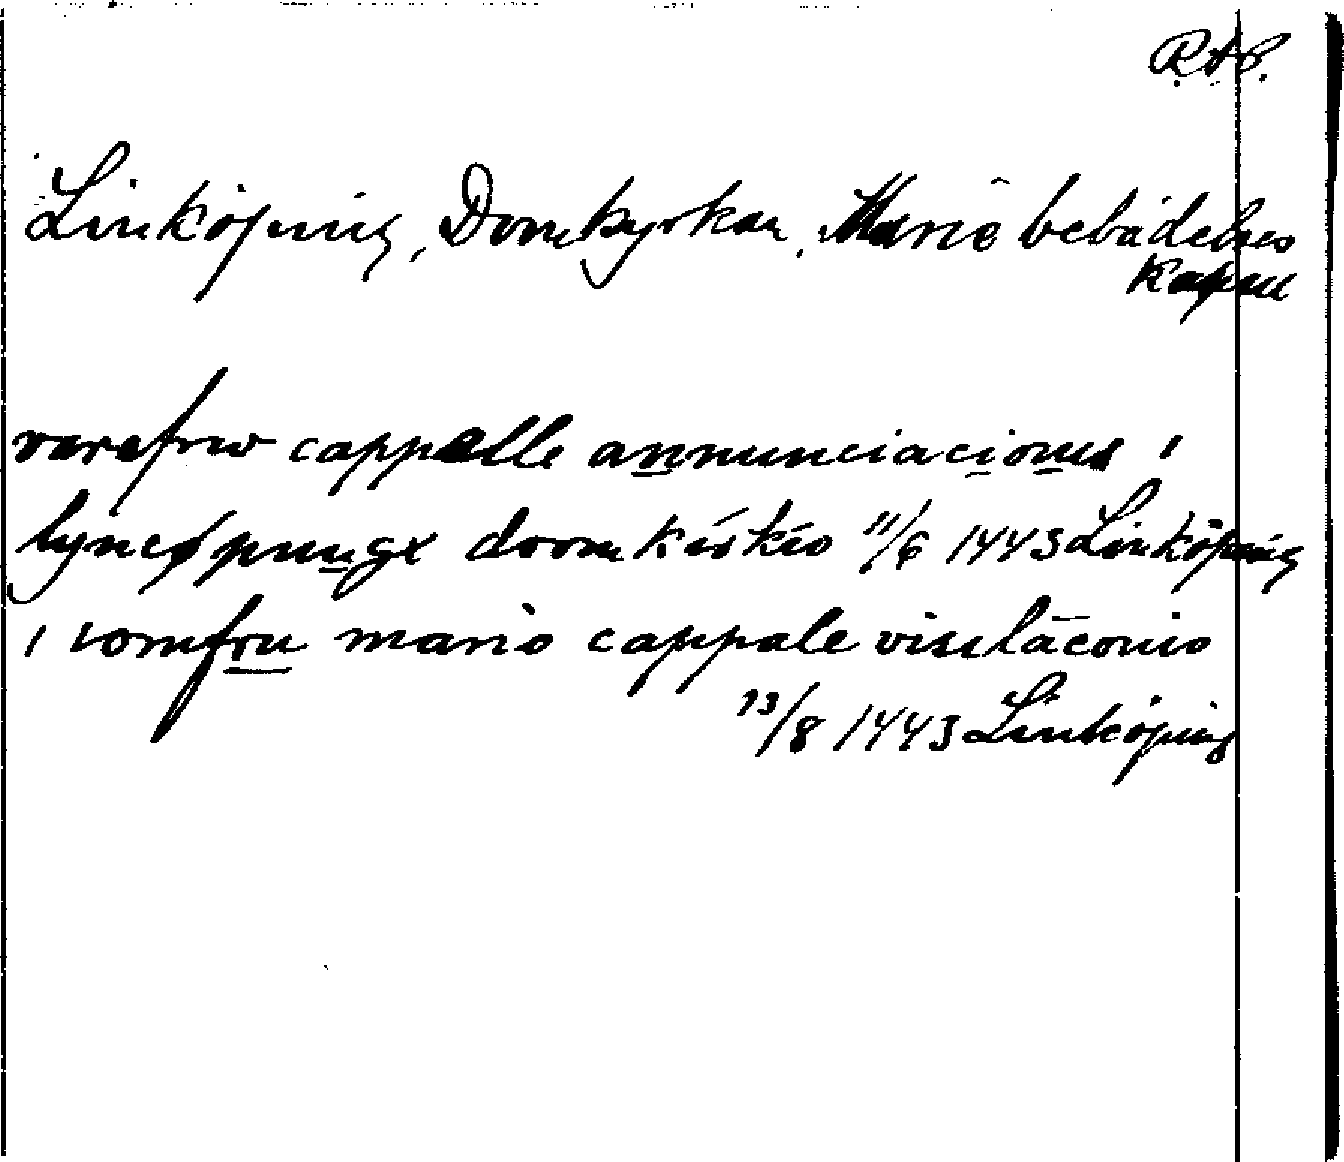 RAP.
Linköping, Domkyrkan, Marie bebådelses
kapell
varefrw cappelle annunciacionis i
lyncøpungx doomkirkio 11/6 1443 Linköping
i iomfru mario cappale visitāconis
13/8 1443 Linköping